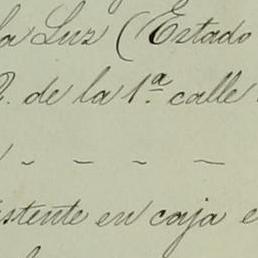 la Luz (Estado
de la 1ª calle
en caja